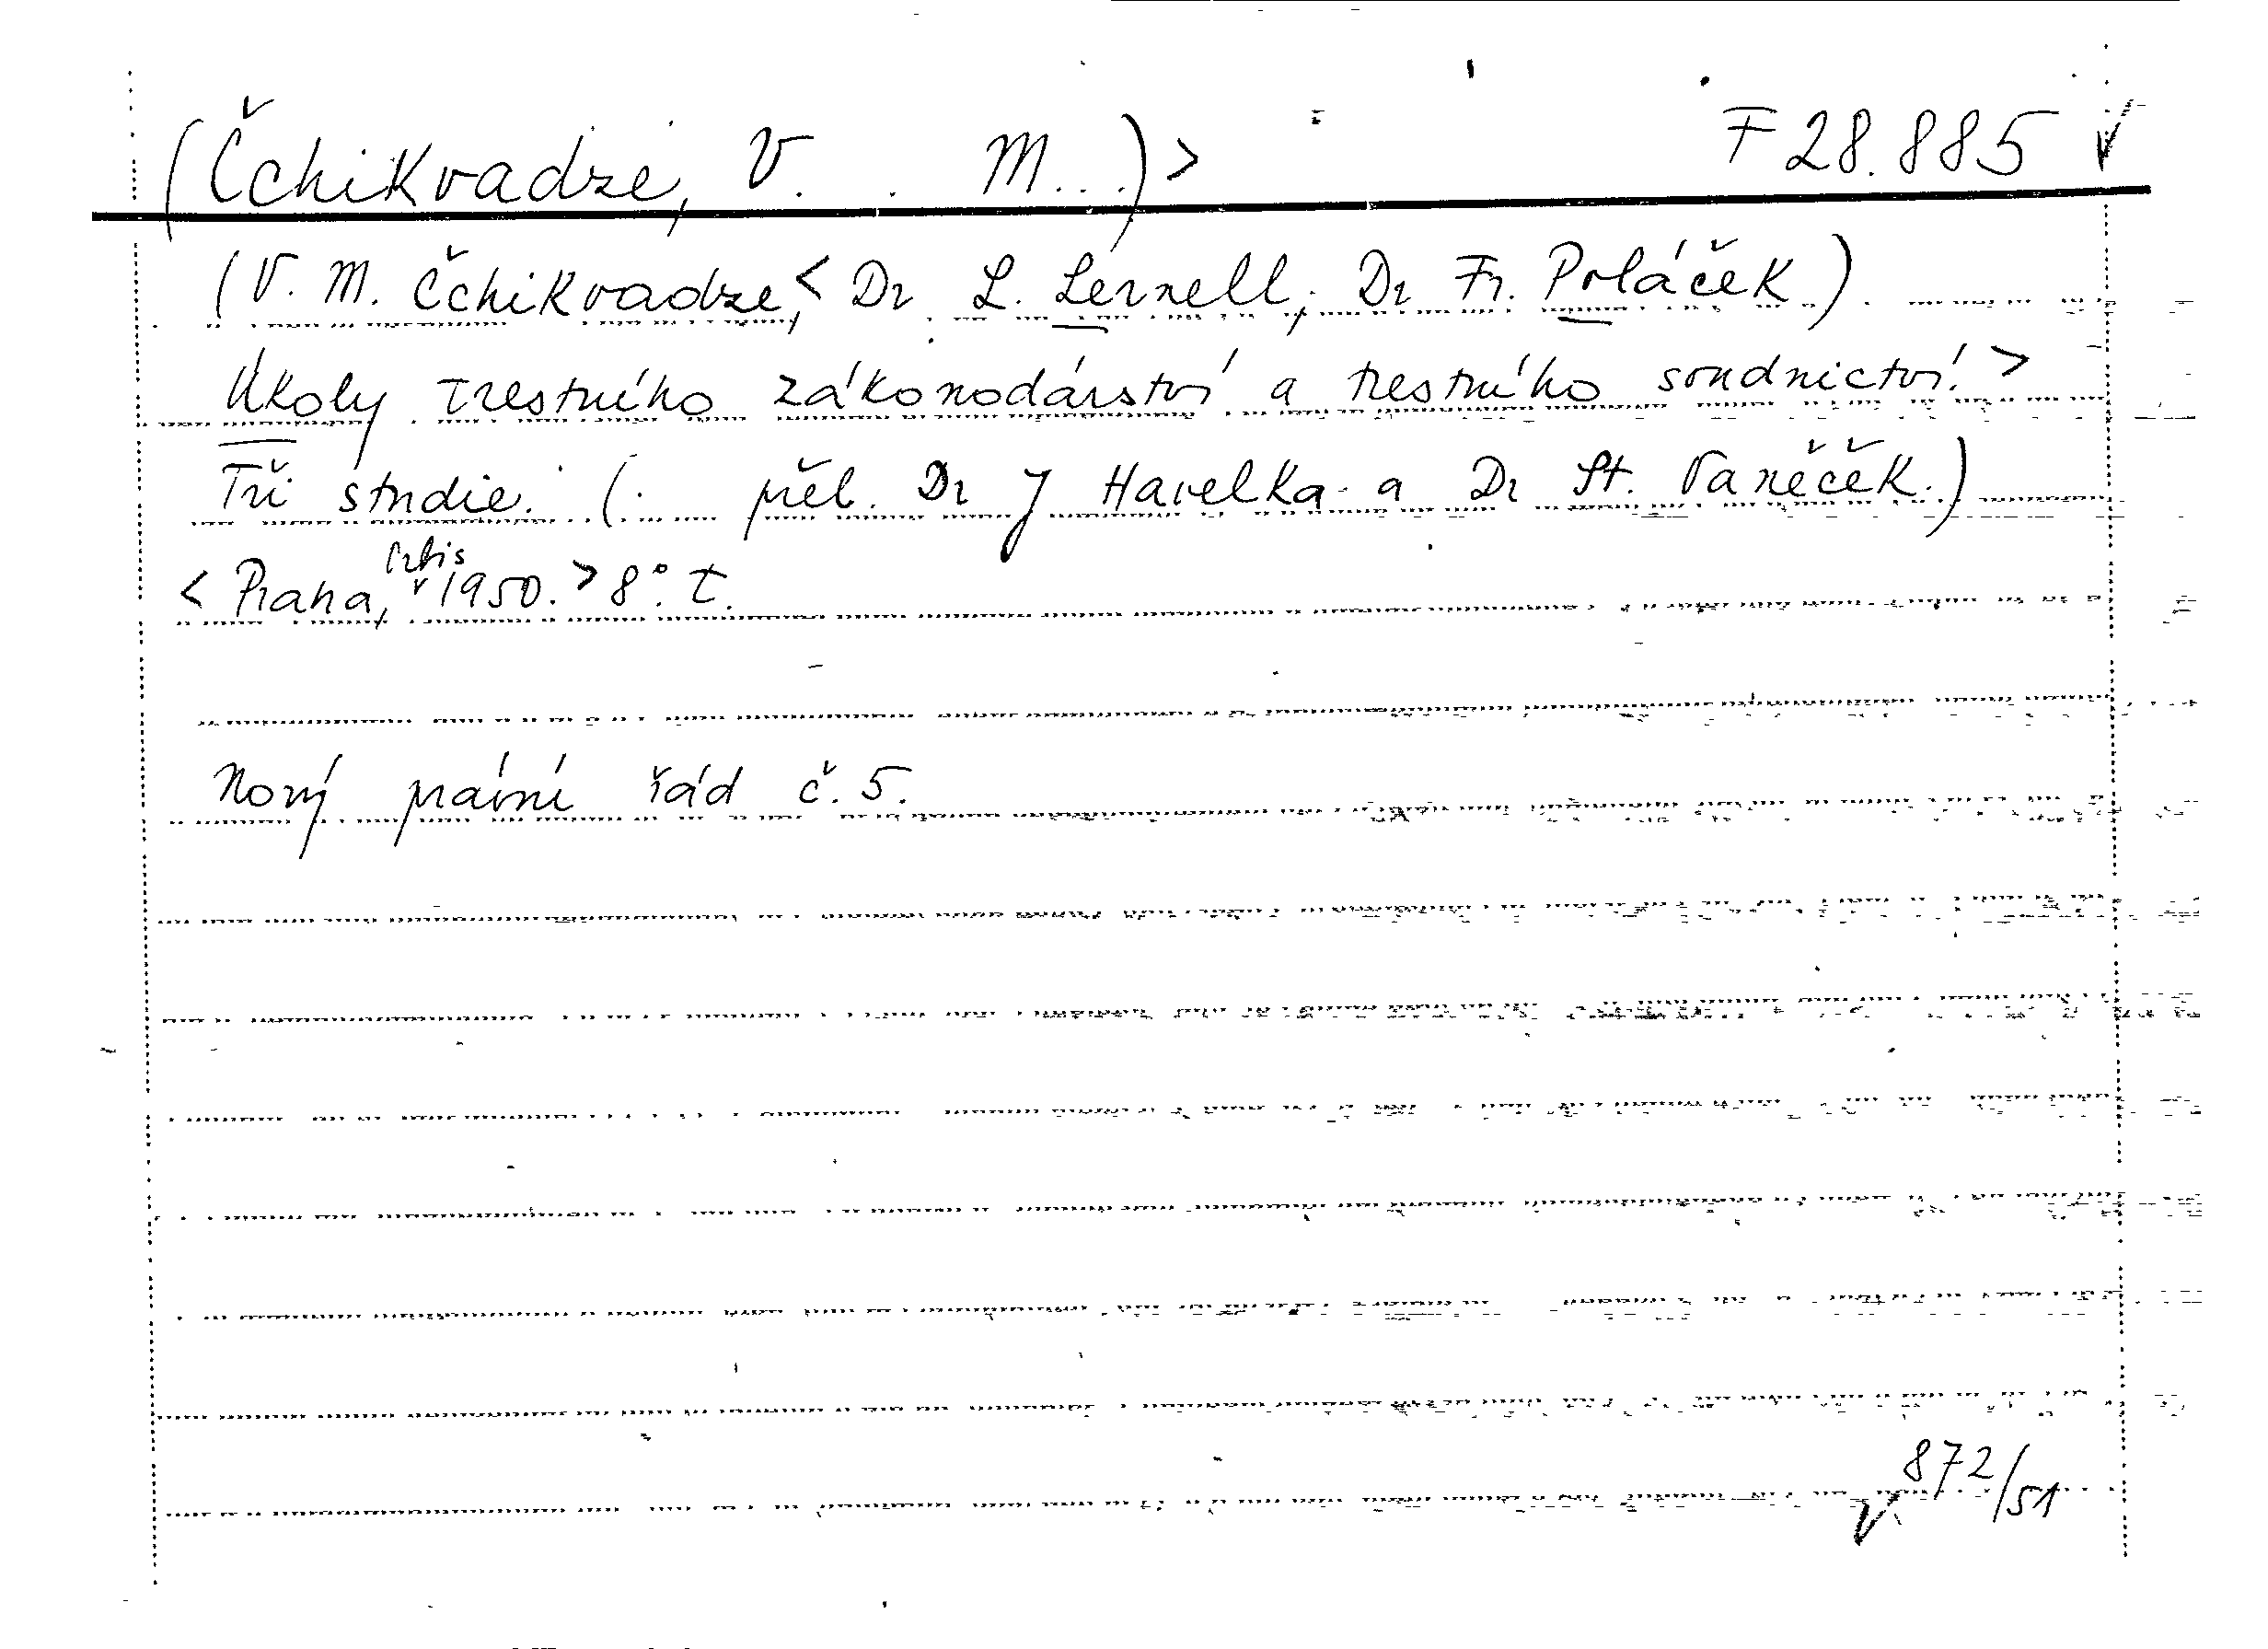 (Čchikvadze, V. . M...)> F 28.885
(V. M. Čchikvadze,< Dr. L. Lernell, Dr Fr. Poláček.)
Úkoly trestního zákonodárství a trestního soudnictví.>
Tři studie. (. přel. Dr J Havelka a Dr St. Vaněček.)
Orbis
< Praha, 1950.> 8°. t.
Nový právní řád č. 5.
872/51